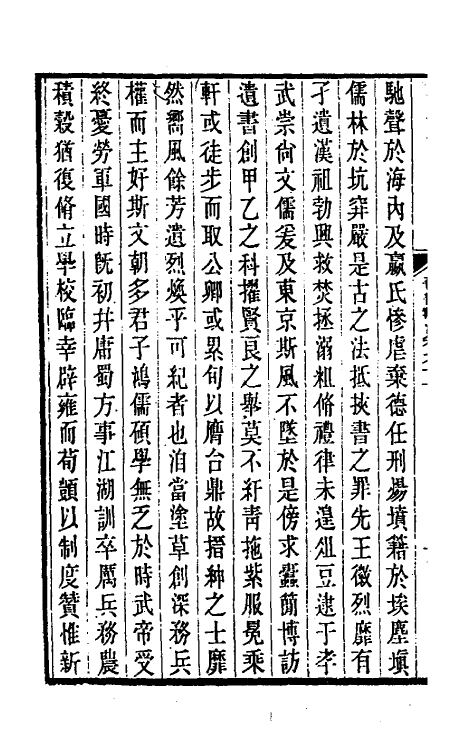 馳聲於海內及嬴氏慘虐棄德任刑煬墳籍於埃塵塡
儒林於坑穽嚴是古之法抵挾書之罪先王徽烈靡有
孑遺漢祖勃興救焚拯溺粗脩禮律未遑俎豆逮于孝
武崇尙文儒爰及東京斯風不墜於是傍求蠹簡博訪
遺書創甲乙之科擢賢良之舉莫不紆靑拖紫服冕乘
軒或徒步而取公卿或累旬以膺台鼎故搢紳之士靡
然嚮風餘芳遺烈煥乎可紀者也洎當塗草創深務兵
權而主好斯文朝多君子鴻儒碩學無乏於時武帝受
終憂勞軍國時旣初幷庸蜀方事江湖訓卒厲兵務農
積穀猶復脩立學校臨幸辟雍而荀顗以制度贊惟新